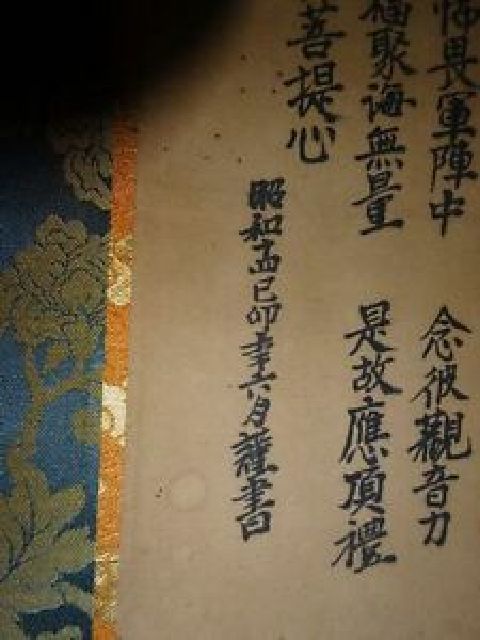 怖畏軍陣中 念彼觀音力
福聚海無量 是故應頂禮
菩提心
昭和十四己卯年六月謹書